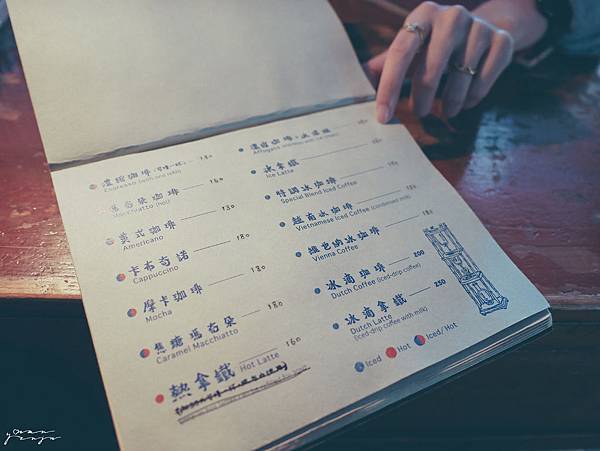 濃縮咖啡 180
Espresso
馬奇朵咖啡 160
Macchiatto (hot)
美式咖啡 130
Americano
卡布奇諾 180
Cappuccino
摩卡咖啡 180
Mocha
焦糖瑪奇朵 180
Caramel Macchiatto
熱拿鐵 Hot Latte 160
濃縮咖啡、冰淇淋
Affogato
冰拿鐵
Ice Latte
特調冰咖啡
Special Blend Iced Coffee
越南冰咖啡
Vietnamese Iced Coffee (condensed milk)
維也納冰咖啡 180
Vienna Coffee
冰滴咖啡 200
Dutch Coffee (iced-drip coffee)
冰滴拿鐵 250
Dutch Latte
(iced-drip coffee with milk)
Iced Hot Iced/Hot